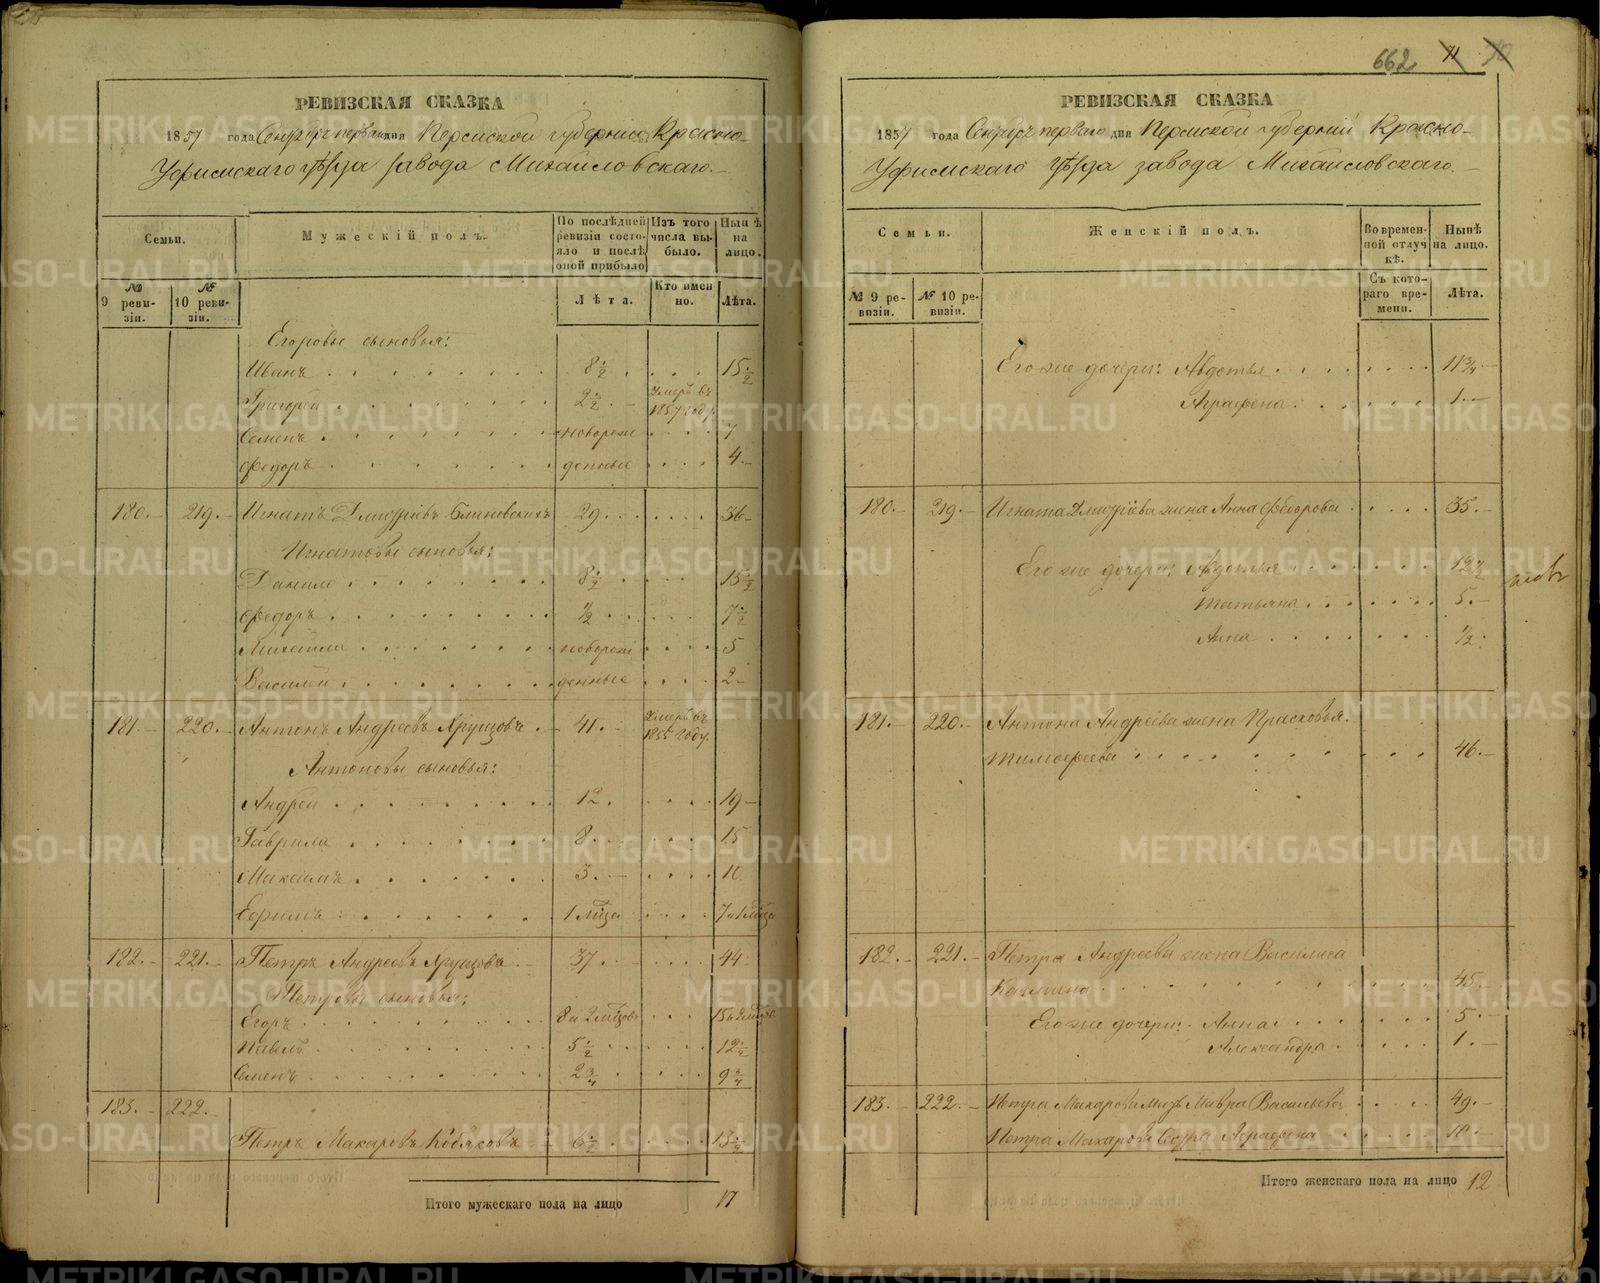 РЕВИЗСКАЯ СКАЗКА
1857 года Сентября первого дня Пермской губернии Красно-
Уфимскаго Уѣзда завода Михайловскаго.
Семьи.
Мужескій полъ.
По послѣдней ревизіи состояло и послѣ оной прибыло
Изъ того числа выбыло.
Нынѣ на лицо.
№ 9 ревизіи.
№ 10 ревизіи.
Лѣта.
Кто именно.
Лѣта.
Егоровы сыновья:
Иванъ 8½ 15½
Григорей 2½ Умеръ въ 1857 году.
Семенъ новорож 7
Федоръ денные 4
180. 219. Игнатъ Дмитріевъ Блиновскихъ 29 36
Игнатовы сыновья:
Данило 8½ 15½
Федоръ ½ 7½
Михайла новорож 5
Василей денные 2
181. 220. Антонъ Андреевъ Хрущовъ 41. Умеръ въ 1855 году.
Антоновы сыновья:
Андрей 12. 19
Гаврила 8 15
Максимъ 3. 10
Ефимъ 1 мѣса 7 и 1 мѣса
182. 221. Петръ Андреевъ Хрущовъ 37 44
Петровы сыновья:
Егоръ 8 и 2 мѣсов 15 и 2 мѣсов
Павелъ 5½ 12½
Семенъ 2¾ 9¾
183. 222.
Петръ Макаровъ Кобяковъ 6½ 13½
Итого мужескаго пола на лицо 17
662 71 70
РЕВИЗСКАЯ СКАЗКА
1857 года Сентября перваго дня Пермской губерніи Красно-
Уфимскаго Уѣзда завода Михайловскаго.
Семьи.
Женскій полъ.
Во временной отлучкѣ.
Нынѣ на лицо.
№ 9 ревизіи.
№ 10 ревизіи.
Съ котораго времени.
Лѣта.
Его же дочери: Авдотья 11¾
Аграфена 1.
180. 219. Игната Дмитріева жена Анна Федорова 35.
Его же дочери: Авдотья 12½
Татьяна 5.
Анна ½.
181. 220. Антона Андреева жена Прасковья
Тимофеева 46.
182. 221. Петра Андреева жена Василиса
45.
Его же дочери: Анна 5.
Александра 1.
183. 222. Петра Макарова мать Мавра Васильева 49.
Петра Макарова Сестра Аграфена 10.
Итого женскаго пола на лицо 12
METRIKI.GASO-URAL.RU